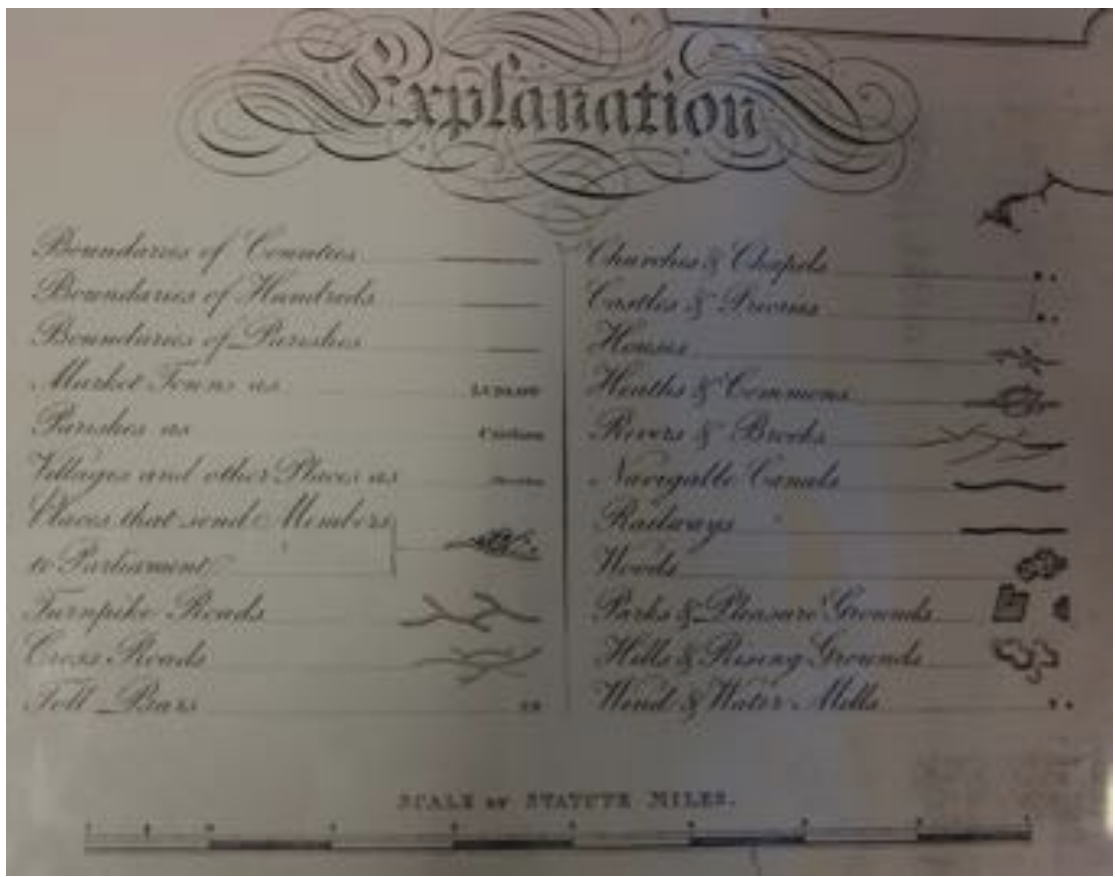 Explanation
Boundaries of Counties
Boundaries of Hundreds
Boundaries of Parishes
Market Towns as LUDLOW
Parishes as
Villages and other Places as
Places that send Members
to Parliament
Turnpike Roads
Cross Roads
Toll Bars TB
Churches & Chapels
Castles & Priories
Houses
Heaths & Commons
Rivers & Brooks
Navigable Canals
Railways
Woods
Parks & Pleasure Grounds
Hills & Rising Grounds
Wind & Water Mills
SCALE OF STATUTE MILES.